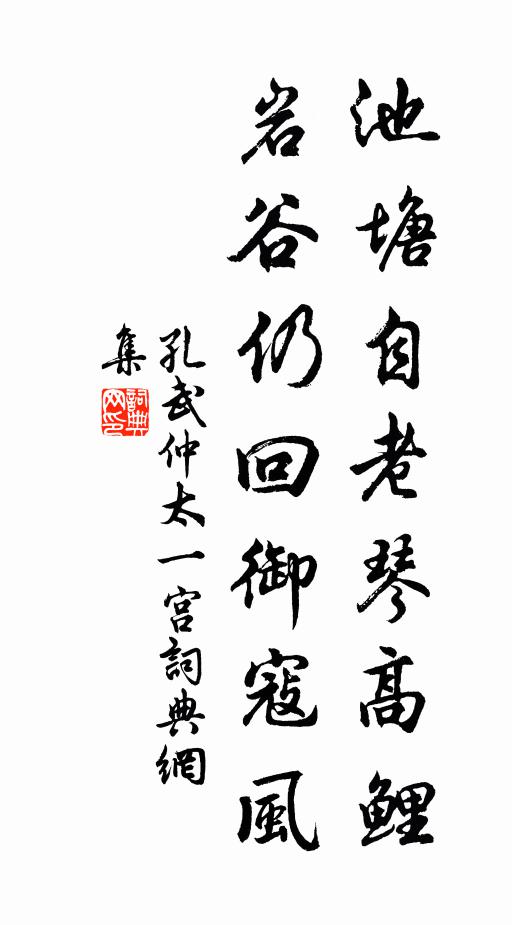 池塘自老琴高鲤
岩谷仍回御寇風
孔武仲太一宫詞典網
集
詞典网印